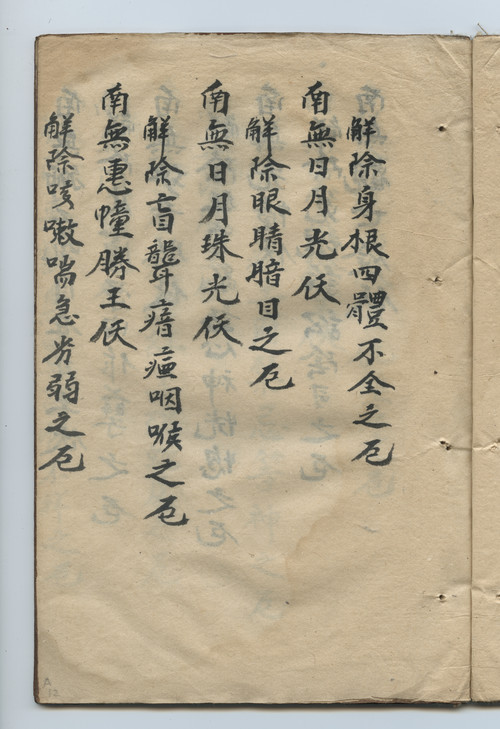 解除身根四體不全之厄
南無日月光仸
解除眼睛暗目之厄
南無日月珠光仸
解除盲聾瘖瘂咽喉之厄
南無惠幢勝王仸
解除咳嗽喘急劳弱之厄
A
12